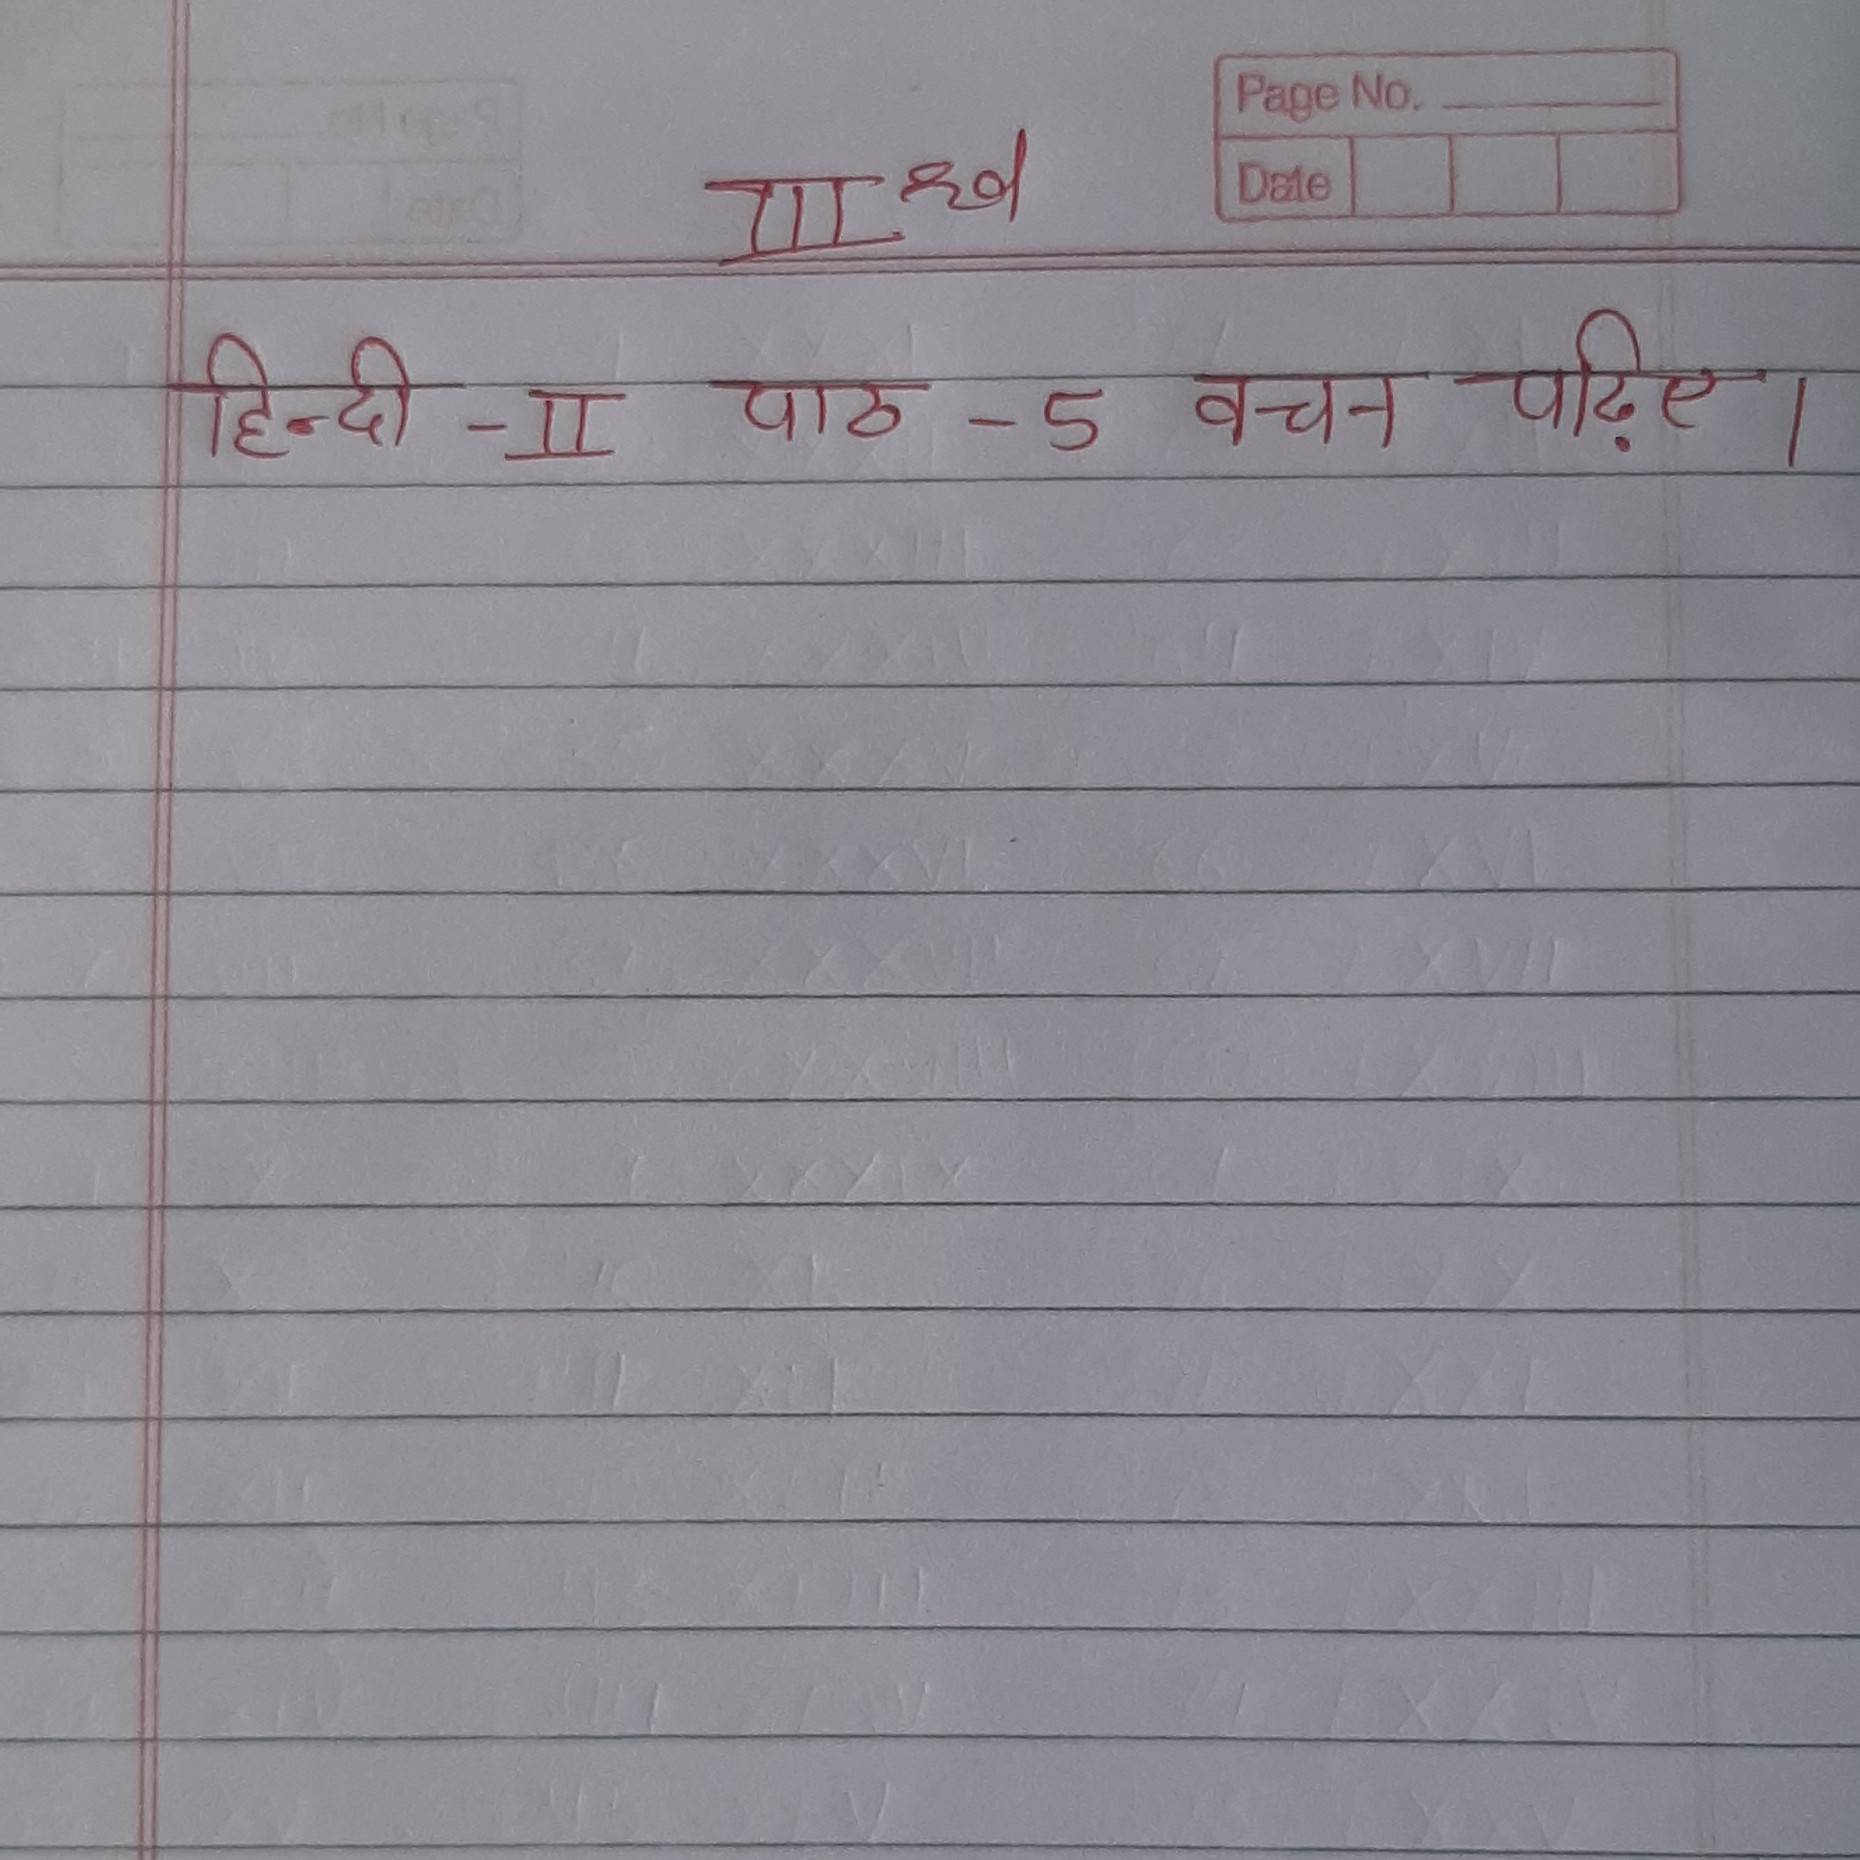 Page No.
Date
III
हिन्दी - II पाठ - 5 वचन पढ़िए ।